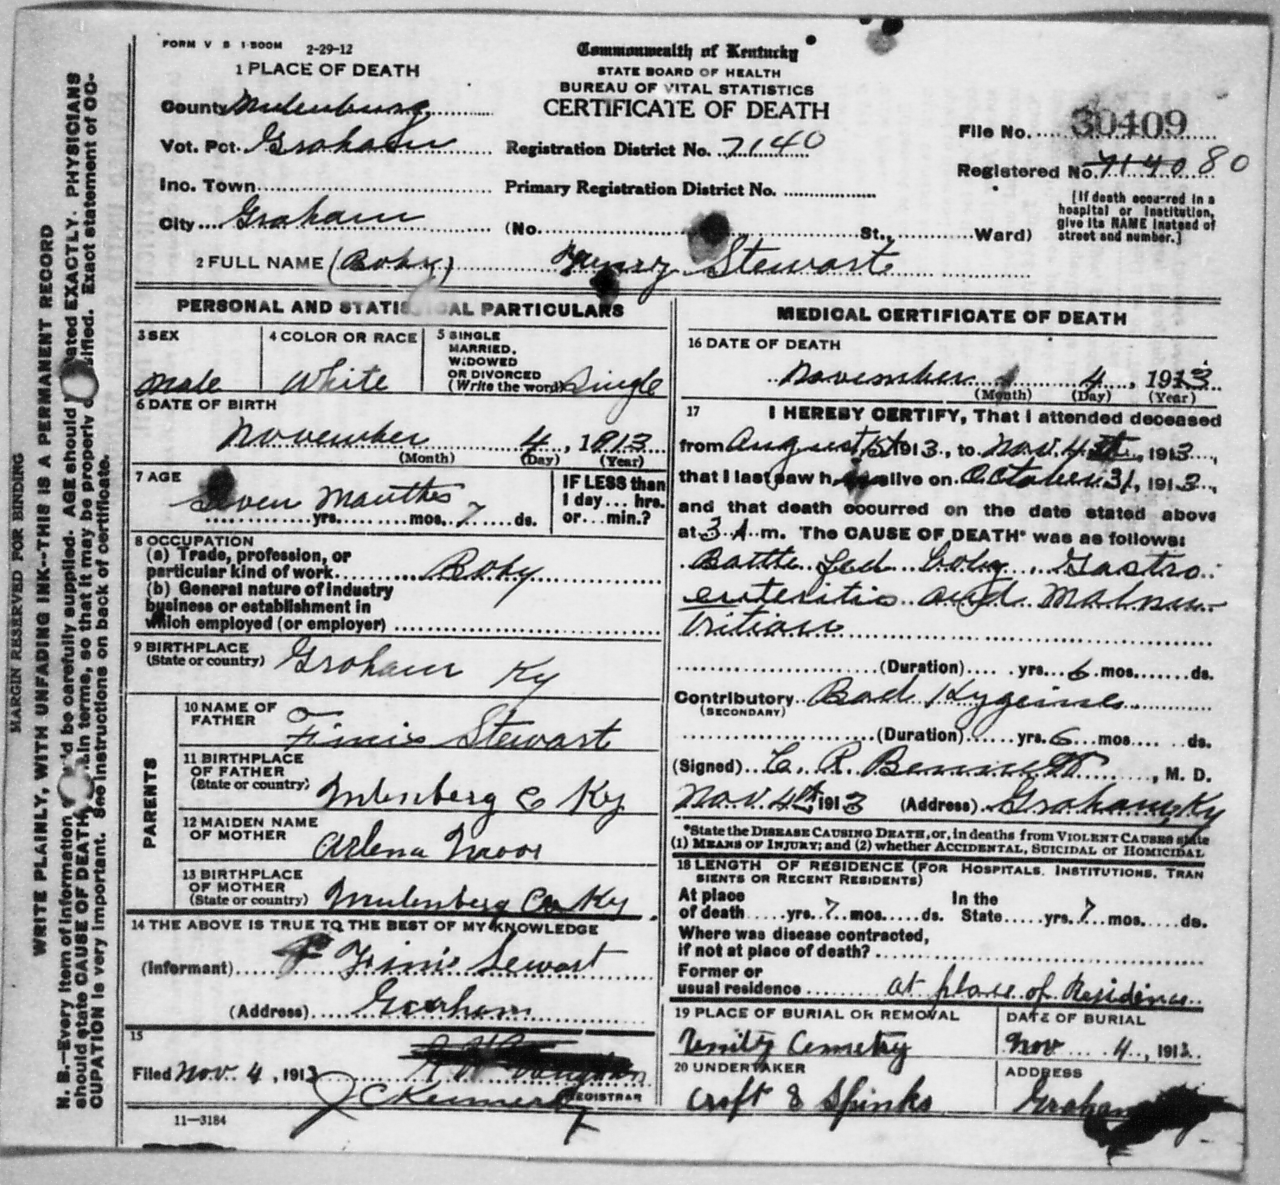 FORM V S 1-500M 2-29-12
Commonwealth of Kentucky
STATE BOARD OF HEALTH
BUREAU OF VITAL STATISTICS
CERTIFICATE OF DEATH
1 PLACE OF DEATH
County Mulenburg
Vot. Pct. Graham
Registration District No. 7140
File No. 30409
Registered No. 7140 80
Inc. Town
Primary Registration District No.
[If death occurred in a hospital or institution, give its NAME instead of street and number.]
City Graham
(No. St., Ward)
2 FULL NAME (Baby) Henry Stewart
PERSONAL AND STATISTICAL PARTICULARS
3 SEX
Male
4 COLOR OR RACE
White
5 SINGLE MARRIED, WIDOWED OR DIVORCED (Write the word)
Single
6 DATE OF BIRTH
November 4, 1913
(Month) (Day) (Year)
7 AGE
Seven Months
yrs. mos. 7 ds.
IF LESS than 1 day... hrs. or... min.?
8 OCCUPATION
(a) Trade, profession, or particular kind of work Baby
(b) General nature of industry business or establishment in which employed (or employer)
9 BIRTHPLACE (State or country) Graham Ky
PARENTS
10 NAME OF FATHER Finis Stewart
11 BIRTHPLACE OF FATHER (State or country) Mulenberg C Ky
12 MAIDEN NAME OF MOTHER Arlena
13 BIRTHPLACE OF MOTHER (State or country) Mulenberg Co Ky.
14 THE ABOVE IS TRUE TO THE BEST OF MY KNOWLEDGE
(Informant) Finis Sewart
(Address) Graham
15
Filed Nov. 4, 1913
REGISTRAR
11-3184
MEDICAL CERTIFICATE OF DEATH
16 DATE OF DEATH
November 4, 1913
(Month) (Day) (Year)
17 I HEREBY CERTIFY, That I attended deceased
from August 1913, to Nov. 4th, 1913,
that I last saw him alive on October 31, 1913,
and that death occurred on the date stated above
at 3 A m. The CAUSE OF DEATH* was as follows:
Bottle fed baby. Gastro
enteritis and Malnu-
trition
(Duration) yrs. 6 mos. ds.
Contributory Bad Hygeine
(SECONDARY)
(Duration) yrs. 6 mos. ds.
(Signed) C. R. Bennett, M. D.
Nov. 4th 1913 (Address) Graham Ky
*State the DISEASE CAUSING DEATH, or, in deaths from VIOLENT CAUSES state
(1) MEANS OF INJURY; and (2) whether ACCIDENTAL, SUICIDAL or HOMICIDAL
18 LENGTH OF RESIDENCE (FOR HOSPITALS, INSTITUTIONS, TRANSIENTS OR RECENT RESIDENTS)
At place of death yrs. 7 mos. ds.
In the State yrs. 7 mos. ds.
Where was disease contracted, if not at place of death?
Former or usual residence at place of Residence
19 PLACE OF BURIAL OR REMOVAL
Unity Cemetry
DATE OF BURIAL
Nov 4, 1913
20 UNDERTAKER
Craft & Spinks
ADDRESS
Graham
MARGIN RESERVED FOR BINDING
WRITE PLAINLY, WITH UNFADING INK--THIS IS A PERMANENT RECORD
N. B.--Every item of information be carefully supplied. AGE should stated EXACTLY. PHYSICIANS
should state CAUSE OF DEATH in terms, so that it may be properly classified. Exact statement of OC-
CUPATION is very important. See instructions on back of certificate.